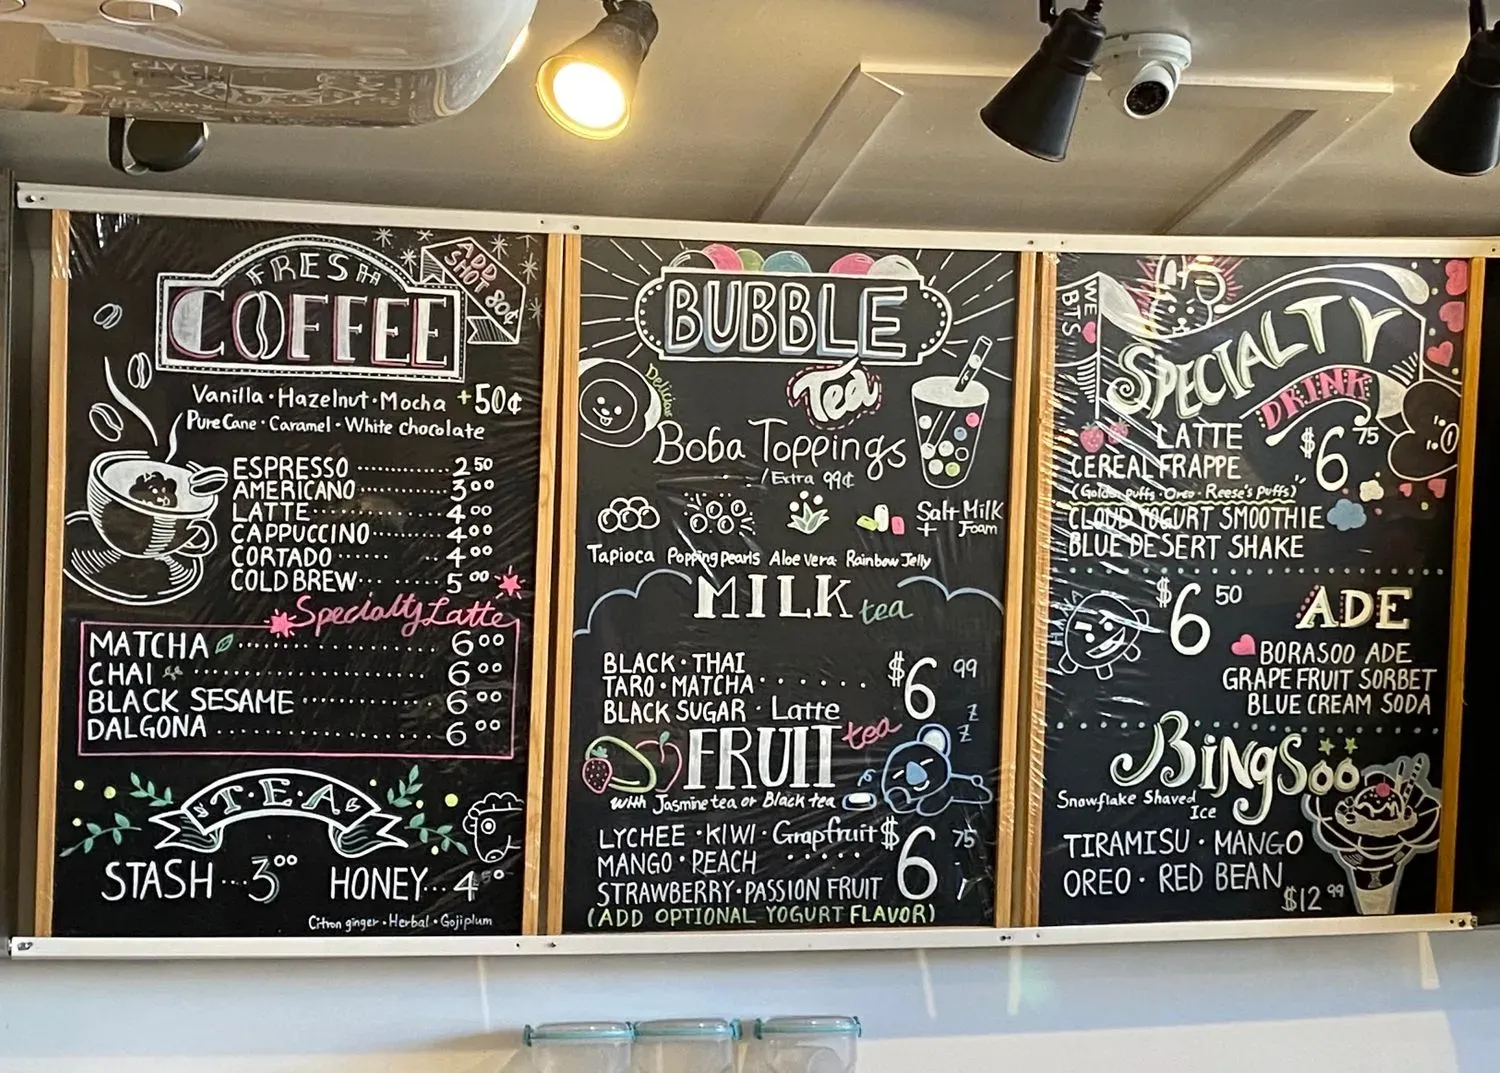 FRESH
COFFEE
ADD
SHOT 80¢
Vanilla · Hazelnut · Mocha +50¢
Pure Cane · Caramel · White chocolate
ESPRESSO 2 50
AMERICANO 3 00
LATTE 4 00
CAPPUCCINO 4 00
CORTADO 4 00
COLD BREW 5 00
Specialty Latte
MATCHA 6 00
CHAI 6 00
BLACK SESAME 6 00
DALGONA 6 00
T·E·A
STASH 3 00 HONEY 4
Citron ginger · Herbal · Goji plum
BUBBLE
Tea
Delicias
Boba Toppings
/Extra 99¢
Salt Milk
+ Foam
Tapioca Popping pearls Aloe vera Rainbow Jelly
MILK tea
BLACK · THAI
TARO · MATCHA $6 99
BLACK SUGAR · Latte
FRUIT tea
Z
Z
with Jasmine tea or Black tea
LYCHEE · KIWI · Grapfruit $6 75
MANGO · PEACH
STRAWBERRY · PASSION FRUIT
(ADD OPTIONAL YOGURT FLAVOR)
WE
BTS
SPECIALTY
DRINK
LATTE $6 75
CEREAL FRAPPE
(Golden puffs · Oreo · Reese's puffs)
CLOUD YOGURT SMOOTHIE
BLUE DESERT SHAKE
$6 50 ADE
BORASOO ADE
GRAPEFRUIT SORBET
BLUE CREAM SODA
BiNGSoo
Snowflake Shaved
Ice
TIRAMISU · MANGO
OREO · RED BEAN
$12 99